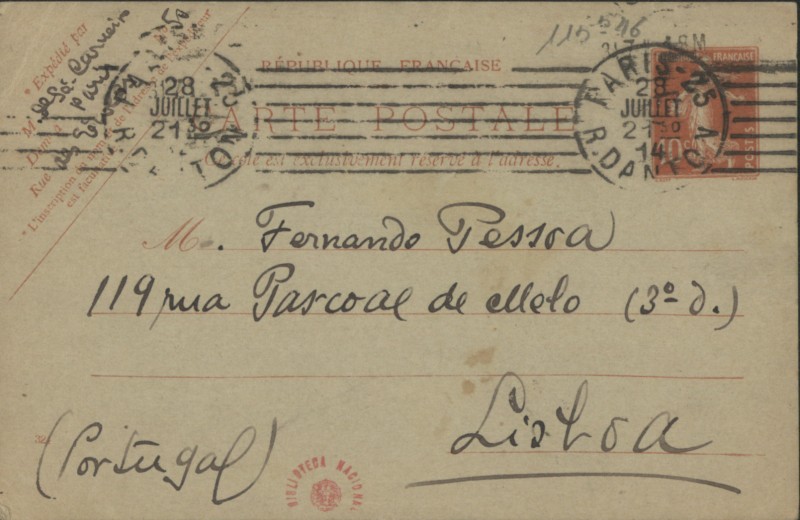 115546
RÉPUBLIQUE FRANÇAISE
CARTE POSTALE
Ce côté est exclusivement réservé à l'adresse.
* Expédié par
M. de Sá Carneiro
Paris
Rue
* L'inscription du nom et de l'adresse de l'expéditeur
est facultative
28
JUILLET
21 30
PARIS-25
28
JUILLET
21 30
14
R. DANTON
FRANÇAISE
10
POSTES
M. Fernando Pessoa
119 rua Pascoal de Melo (3º d.)
Lisboa
(Portugal)
BIBLIOTECA NACIONAL